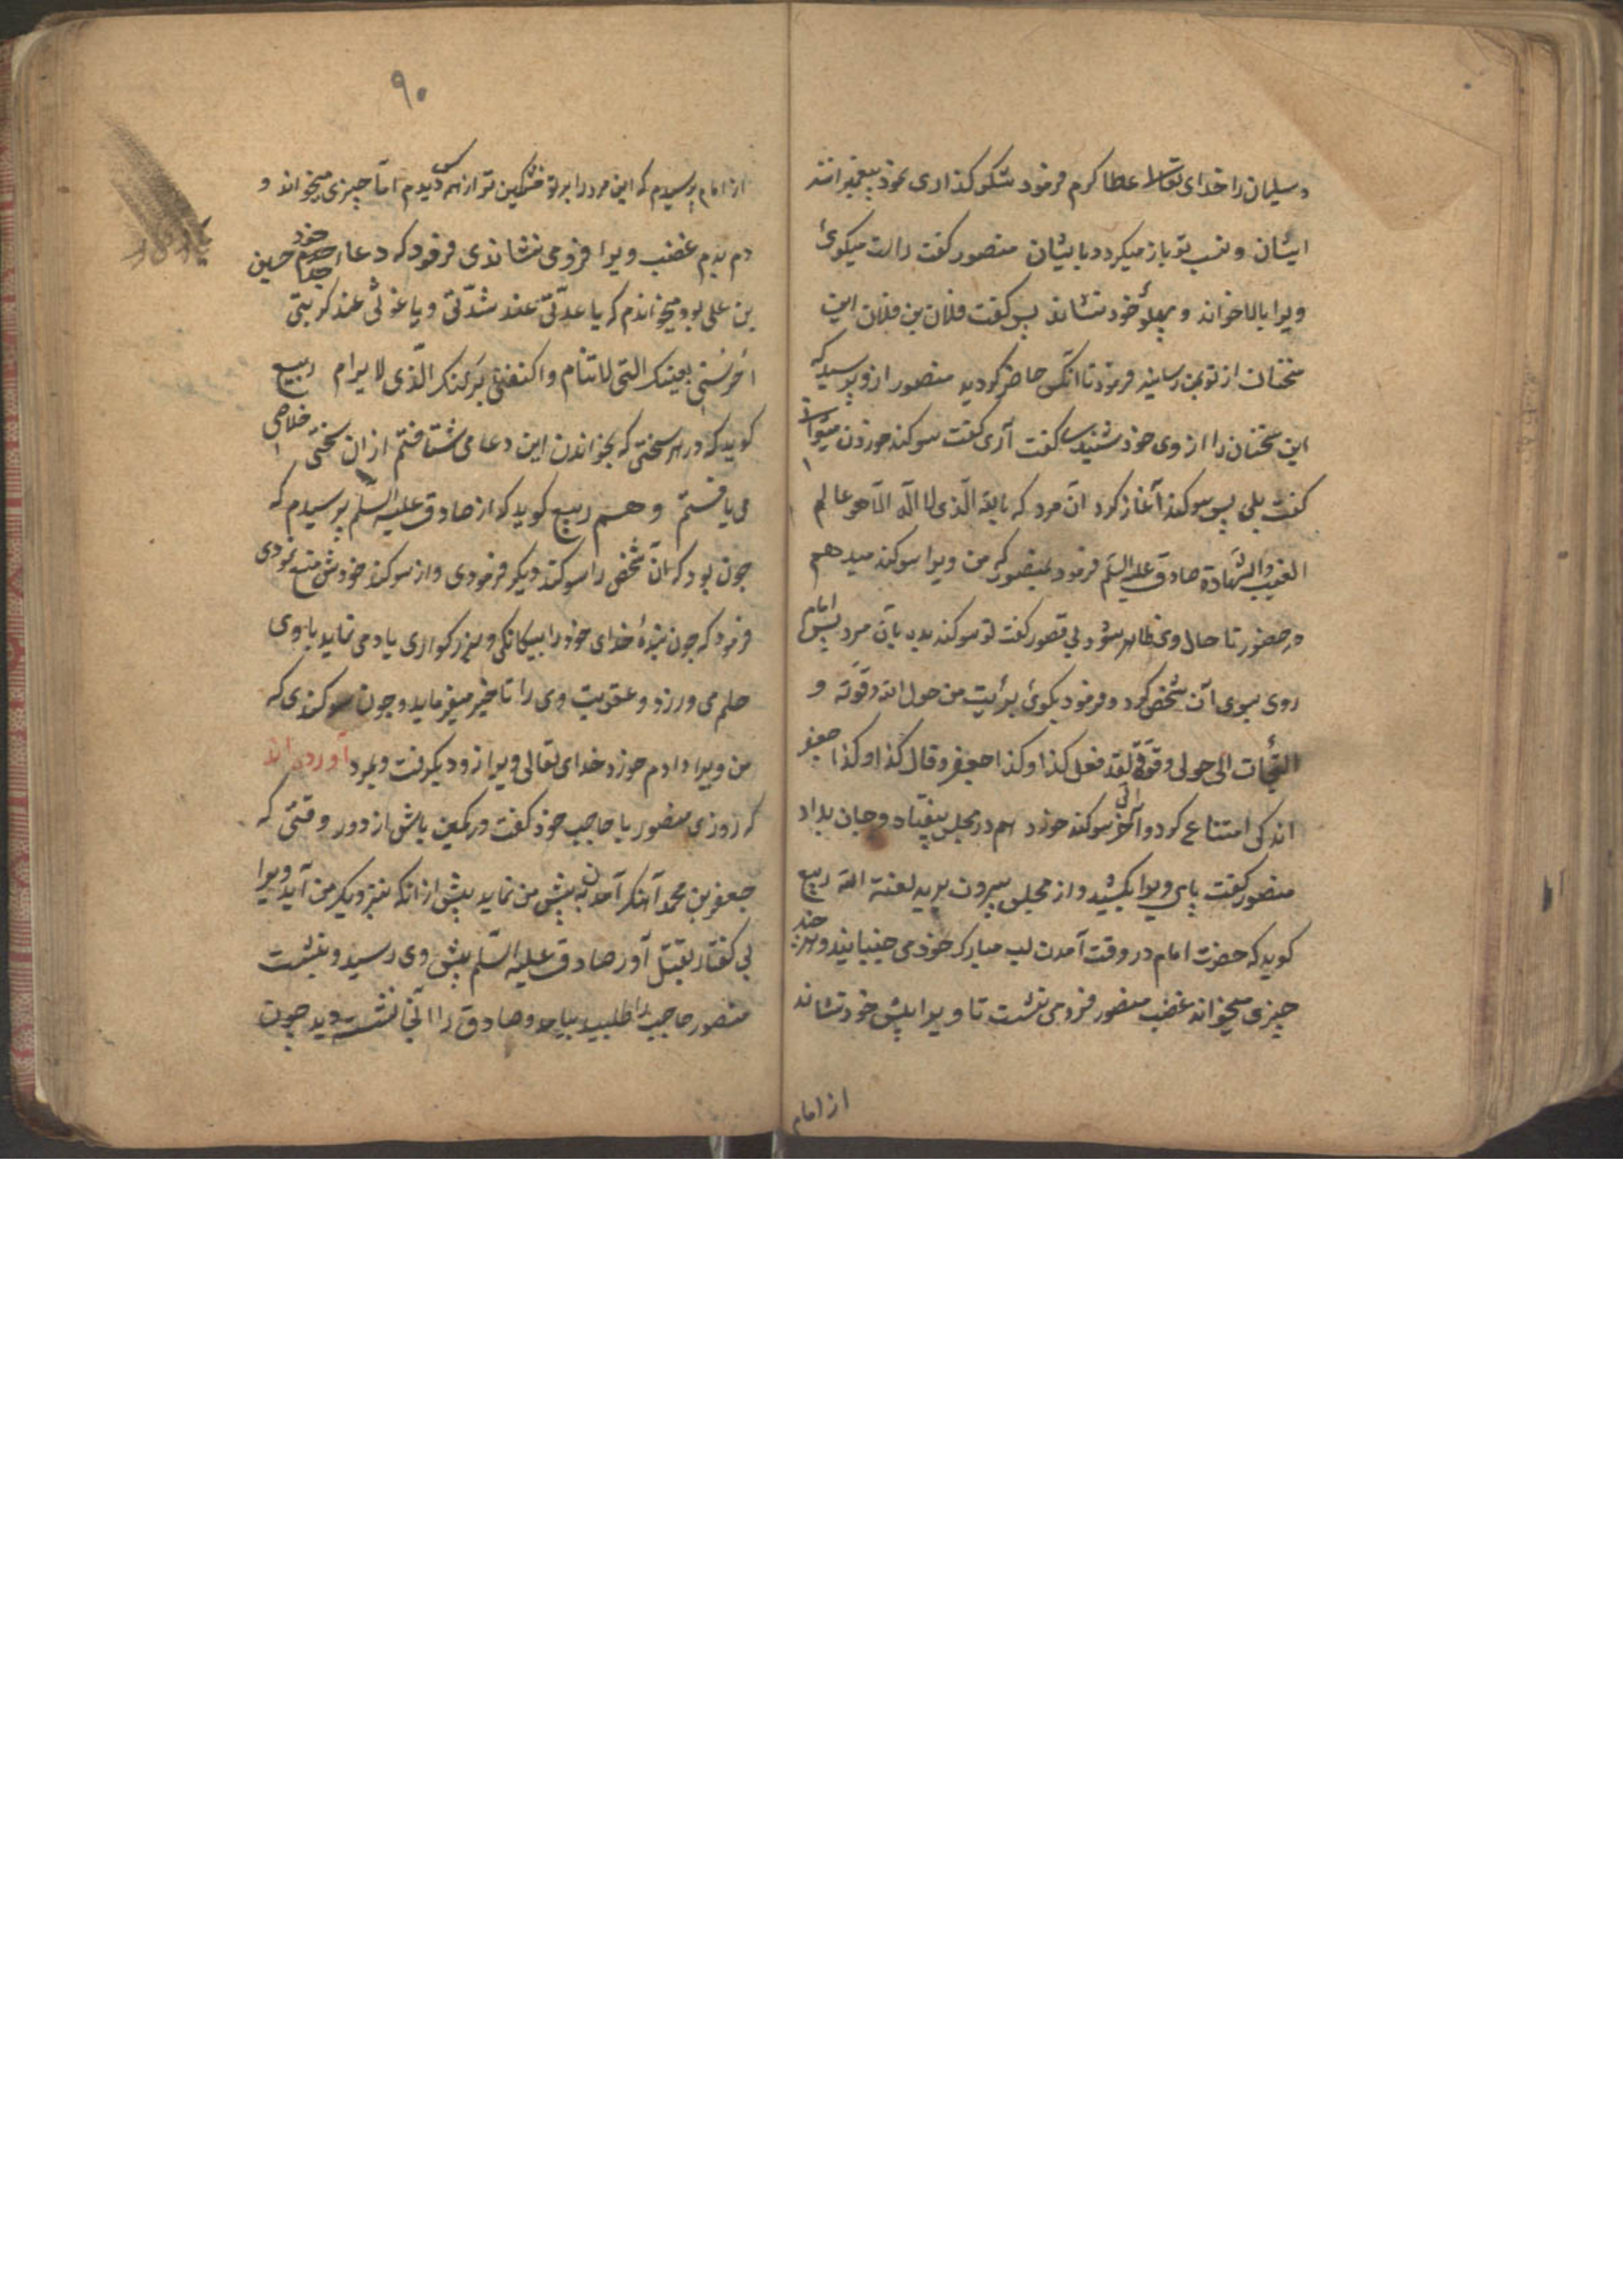 و سلیمان را خدای تعالی عطا کرم فرمود شکر کذاری نمود پیغمبرانند
ایشان و نسب تو باز میکردد بایشان منصور کفت راست میکوئی
ویرا بالا خواند و پهلوء خود نشاند پس کفت فلان بن فلان این
سخنان از تو بمن رسانید فرمود تا آنکس حاضر کردید منصور از و پرسید که
این سخنان را از وی خود شنیده کفت آری کفت سوکند خوردن میتوانی
کفت بلی پس سوکند آغاز کرد آن مرد که بالله الّذی لا اله الّا هو عالم
الغیب والشّهادة صادق علیه السّلم فرمود بمنصور که من ویرا سوکند میدهم
در حضور تا حال وی ظاهر شود پس منصور کفت تو سوکند بده بآن مرد پس امام
روی بسوی آن شخص کرد و فرمود بکوی برأیت من حول الله و قوّته و
التجأت الی حولی و قوّتی لقد فعل کذا و کذا جعفر و قال کذا و کذا جعفر
اندکی امتناع کرد و آخر سوکند خورد هم در مجلس بیفتاد و جان بداد
منصور کفت پای ویرا بکشید و از مجلس بیرون برید لعنة الله ربیع
کوید که حضرت امام در وقت آمدن لب مبارک خود می جنبانید و هر چند
چیزی میخواند غضب منصور فرو می نشست تا ویرا پیش خود نشاند
از امام
۹۰
از امام پرسیدم که این مرد را بر تو خشمکین تر از همه کس دیدم امّا چیزی میخواند و
دم بدم غضب ویرا فرو می نشاندی فرمود که دعا جدم خود حسین
بن علی بود میخواندم که یا عدّتی عند شدّتی و یا غوثی عند کربتی
احرسنی بعینک التی لا تنام واکنفنی برکنک الّذی لا یرام ربیع
کوید که در هر سختی که بخواندن این دعا می شتافتم از آن سختی خلاصی
می یافتم و هم ربیع کوید که از صادق علیه السّلم پرسیدم که
چون بود که آن شخص را سوکند دیکر فرمودی و از سوکند خودش منع نمودی
فرمود که چون بندهٔ خدای خود را بیکانکی و بزرکواری یاد می نماید با وی
حلم می ورزد و عقوبت وی را تاخیر میفرماید و چون سوکندی که
من ویرا دادم خورد خدای تعالی ویرا زود بکرفت و بمرد آورده اند
که روزی منصور با حاجب خود کفت در کمین باش از دور وقتی که
جعفر بن محمد آهنک آمدن به پیش من نماید پیش از انکه بنزدیک من آید ویرا
بی کفتار بقتل آور صادق علیه السّلم پیش وی رسید و بنشست
منصور حاجب را طلبید بیامد و صادق را آنجا نشسته دید چون